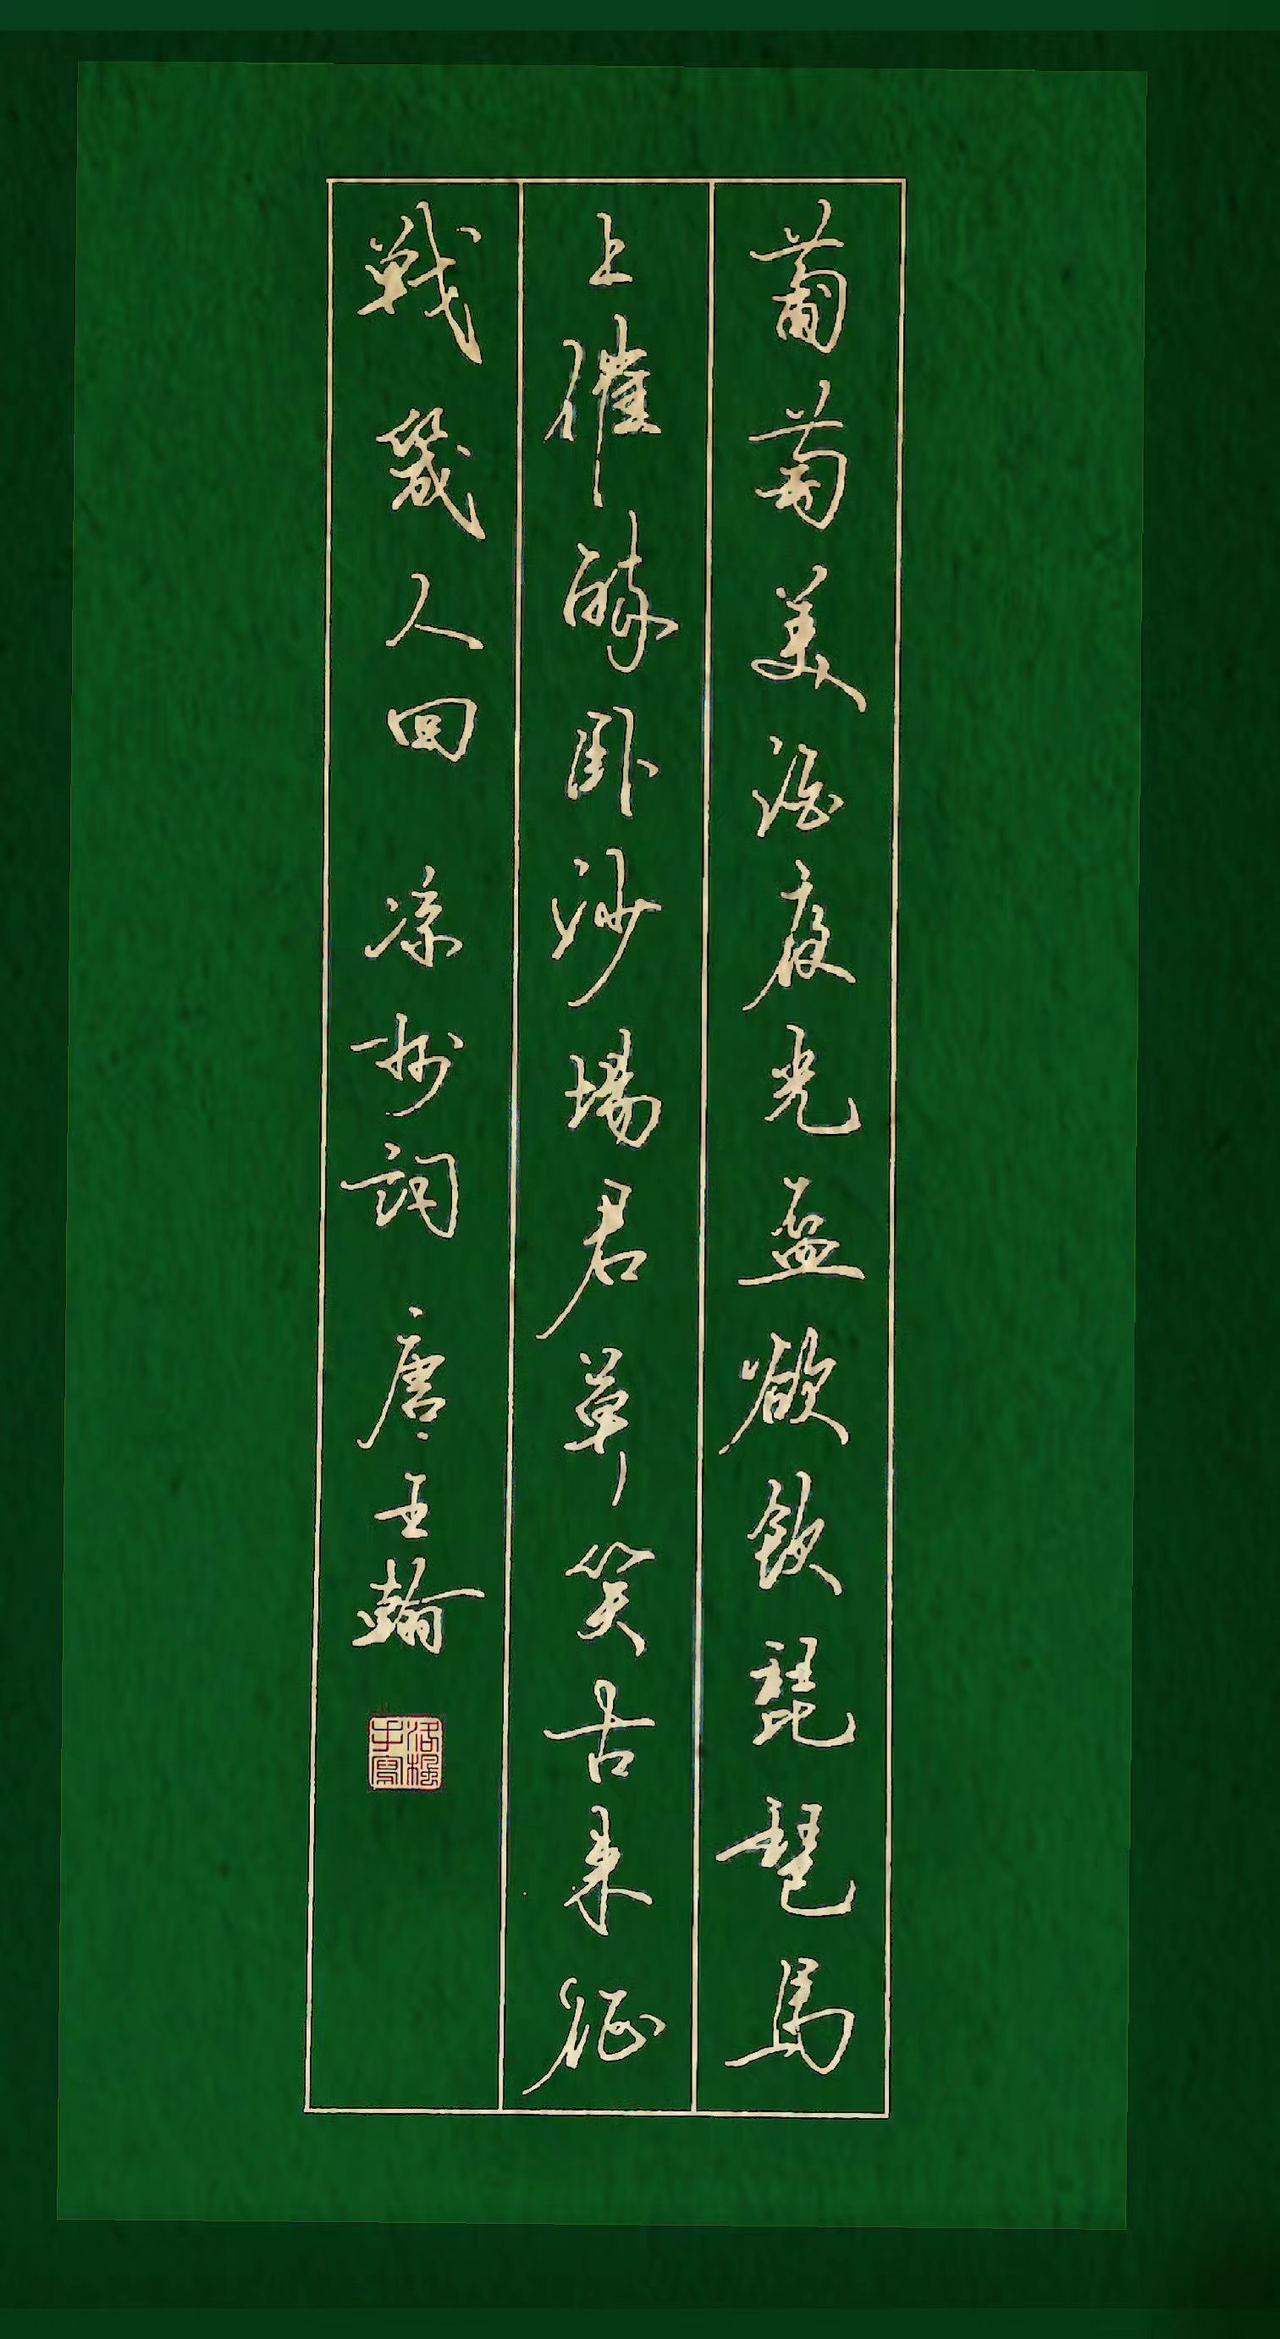 葡萄美酒夜光盃欲飲琵琶馬
上催醉卧沙場君草笑古来征
戦幾人回 凉州詞 唐王翰